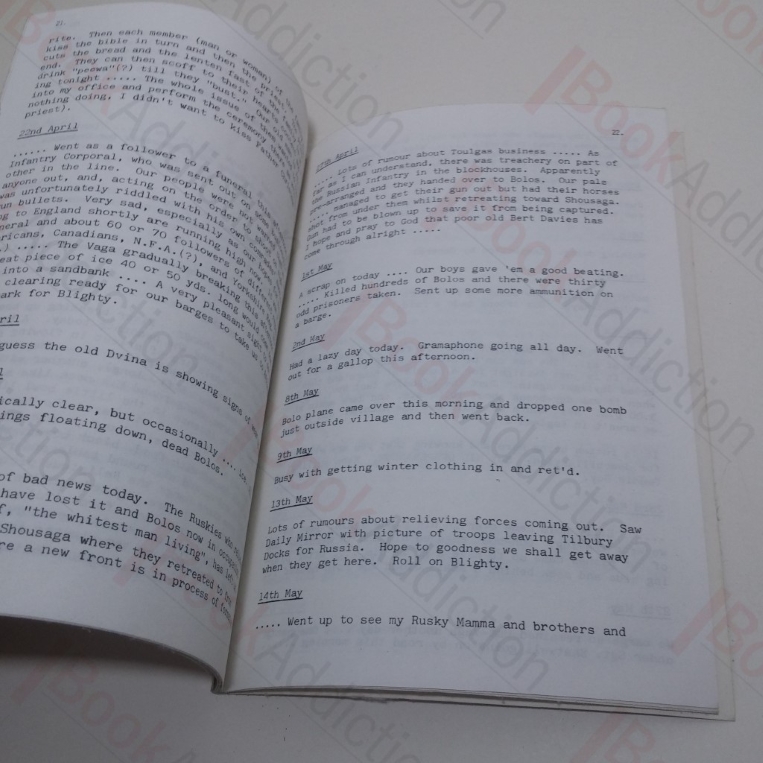 21.
rite. Then each member (man or woman) of the
kiss the bible in turn and then the priest
cuts the bread and the lenten fast
end. They can then scoff to their hearts
drink "peewa"(?) till they "bust."
ing tonight ..... The whole issue of the
into my office and perform the ceremony
nothing doing, I didn't want to kiss
priest).
22nd April
...... Went as a follower to a funeral
Infantry Corporal, who was sent out
other in the line. Our people were
anyone out, and, acting on the order to
was unfortunately riddled with his own
un bullets. Very sad, especially as
g to England shortly are running high
neral and about 60 or 70 followers of
ricans, Canadians, N.F.A.(?), and
.) ..... The Vaga gradually breaking
eat piece of ice 40 or 50 yds. long
into a sandbank .... A very pleasant
clearing ready for our barges to take us
ark for Blighty.
ril
guess the old Dvina is showing signs of
ically clear, but occasionally ....
ings floating down, dead Bolos.
of bad news today. The Ruskies
have lost it and Bolos now in
f, "the whitest man living", has
Shousaga where they retreated to
re a new front is in process of
22.
April
..... Lots of rumour about Toulgas business ..... As
far as I can understand, there was treachery on part of
the Russian Infantry in the blockhouses. Apparently
pre-arranged and they handed over to Bolos. Our pale
managed to get their gun out but had their horses
shot from under them whilst retreating toward Shousaga.
Gun had to be blown up to save it from being captured.
I hope and pray to God that poor old Bert Davies has
come through alright .....
1st May
A scrap on today .... Our boys gave 'em a good beating.
..... Killed hundreds of Bolos and there were thirty
odd prisoners taken. Sent up some more ammunition on
a barge.
2nd May
Had a lazy day today. Gramaphone going all day. Went
out for a gallop this afternoon.
8th May
Bolo plane came over this morning and dropped one bomb
just outside village and then went back.
9th May
Busy with getting winter clothing in and ret'd.
13th May
Lots of rumours about relieving forces coming out. Saw
Daily Mirror with picture of troops leaving Tilbury
Docks for Russia. Hope to goodness we shall get away
when they get here. Roll on Blighty.
14th May
..... Went up to see my Rusky Mamma and brothers and
BookAddiction